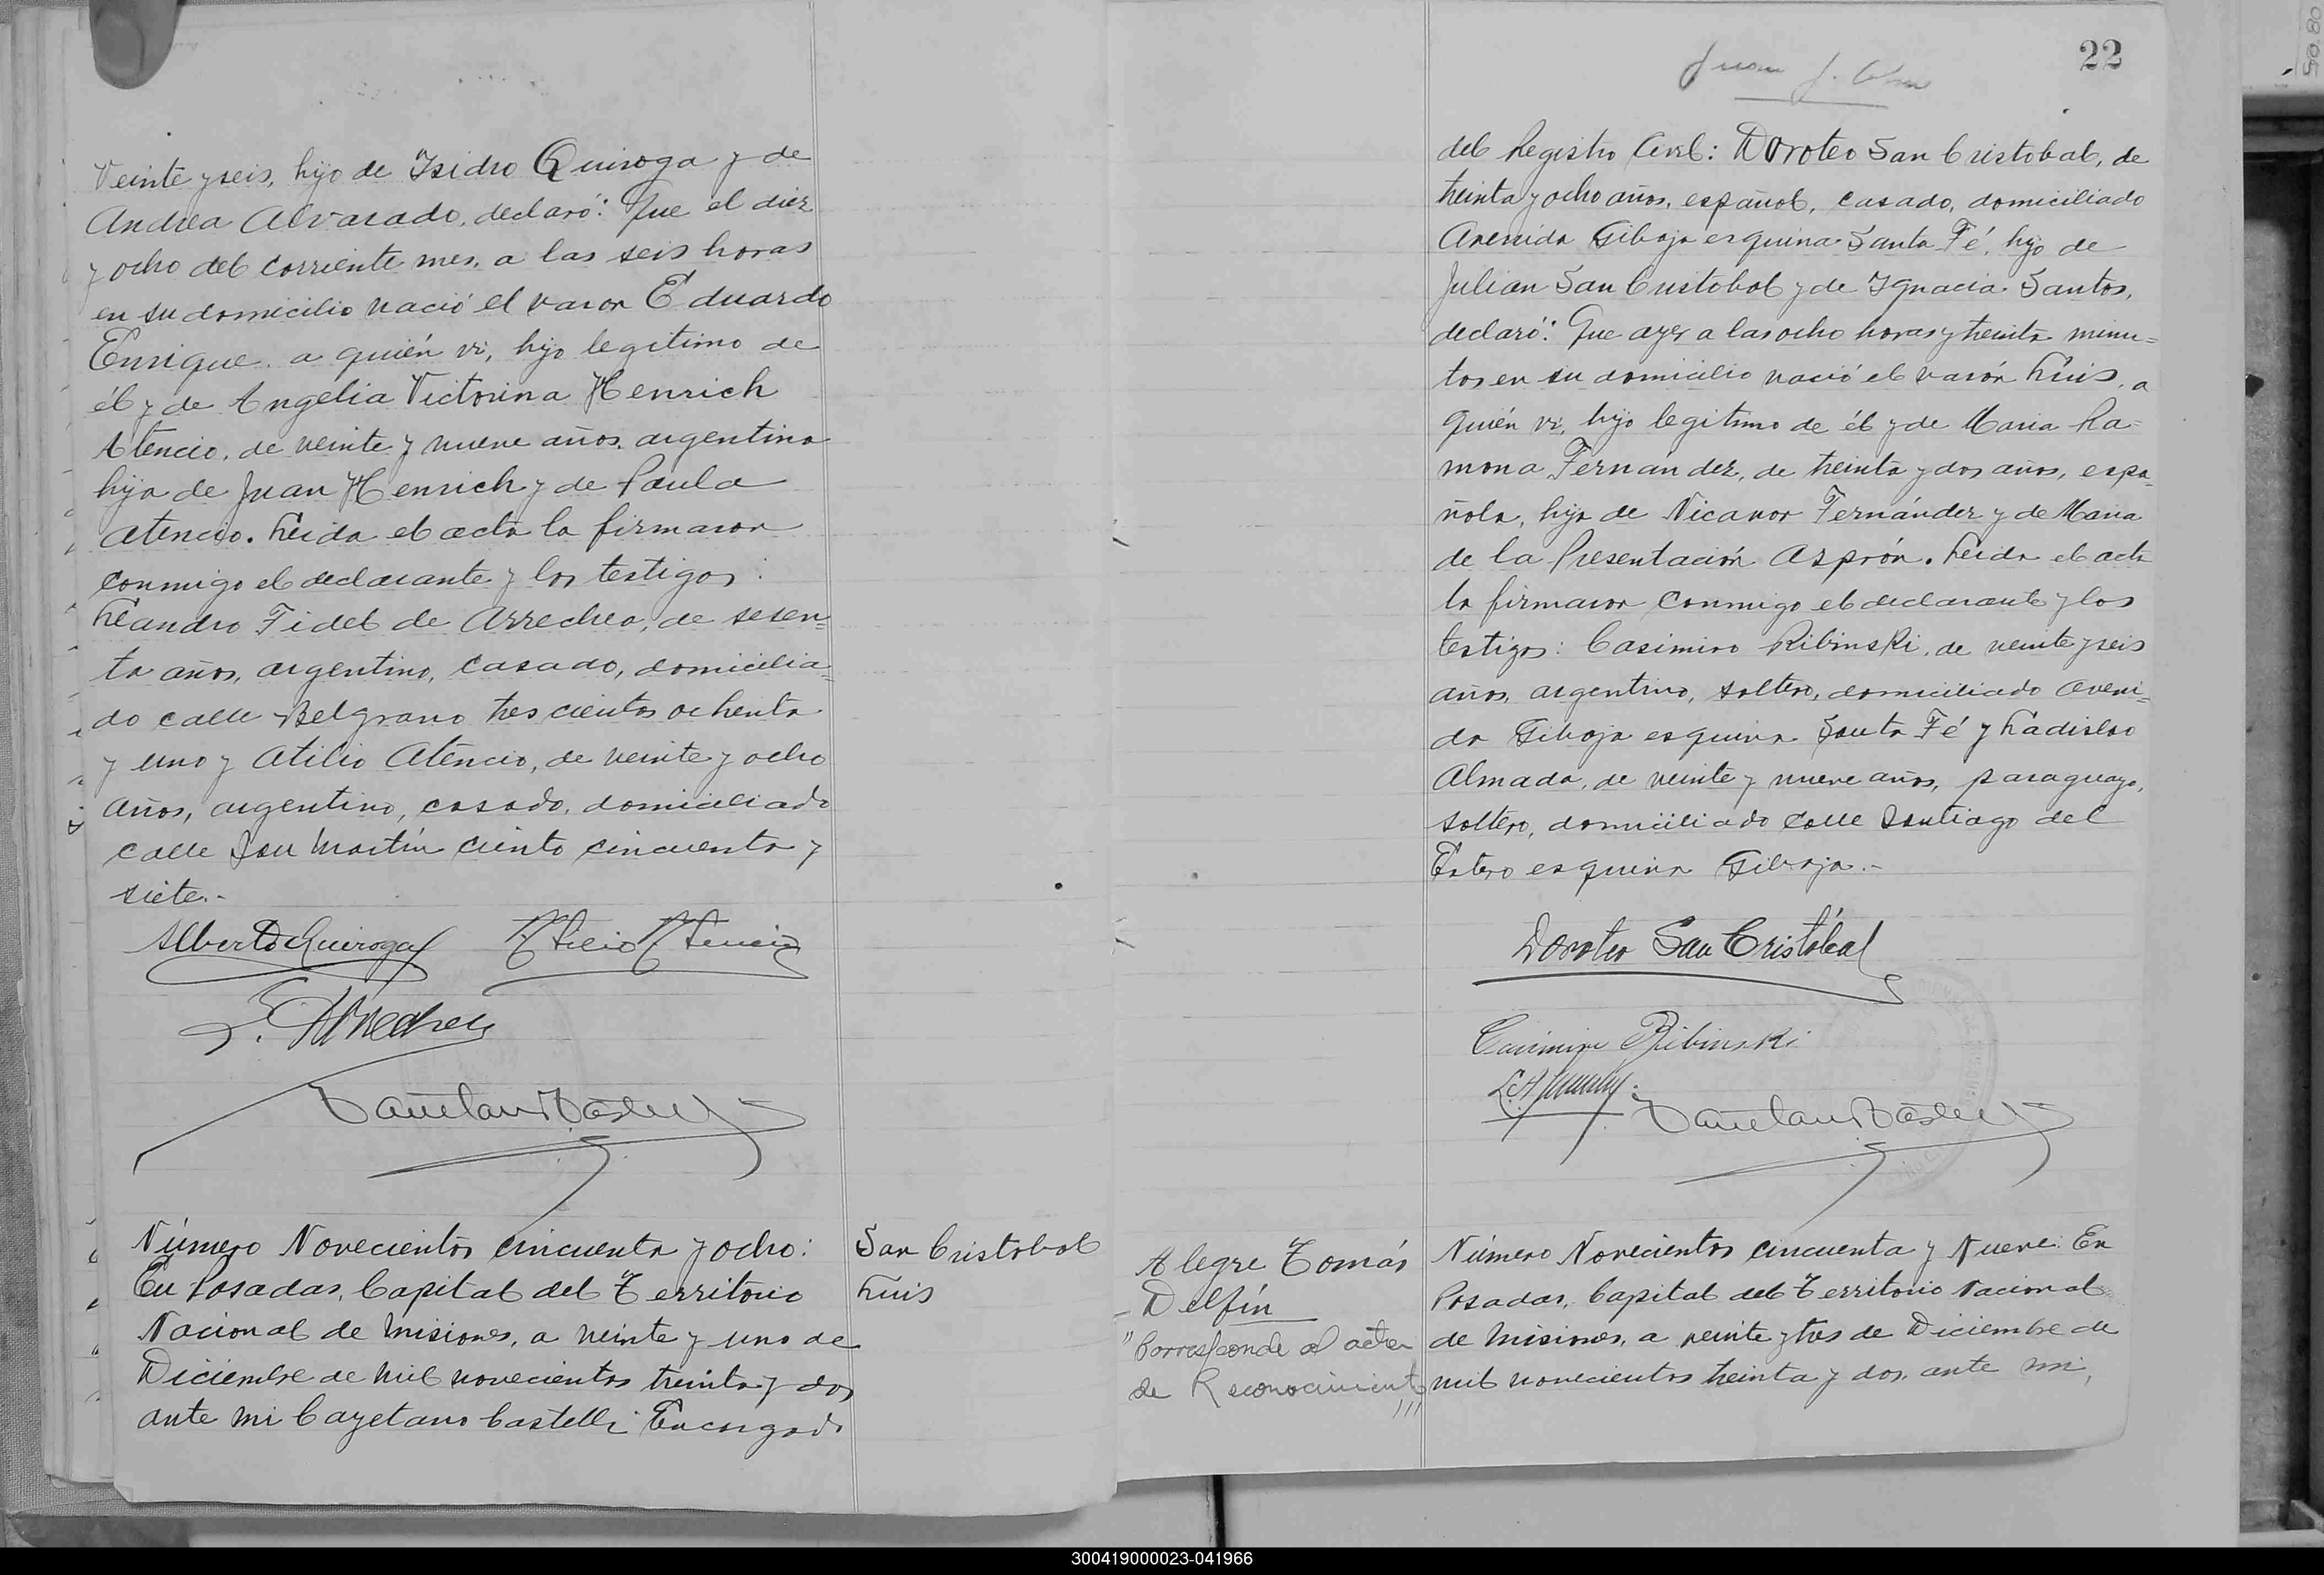 Veinte y seis, hijo de Isidro Quiroga y de
Andrea Alvarado, declaró: Que el diez
y ocho del corriente mes, a las seis horas
en su domicilio nació el varon Eduardo
Enrique a quién vi, hijo legitimo de
él y de Angelia Victorina Henrich
Atencio, de veinte y nueve años, argentina
hija de Juan Henrich y de Paula
Atencio. Leida el acta la firmaron
conmigo el declarante y los testigos:
Leandro Fidel de Arrechea, de sesen=
ta años, argentino, casado, domicilia=
do calle Belgrano trescientos ochenta
y uno y Atilio Atencio, de veinte y ocho
años, argentino, casado, domiciliado
calle San Martín ciento cincuenta y
siete.-
Alberto Quiroga Atilio Atencio
Número Novecientos cincuenta y ocho:
En Posadas, Capital del Territorio
Nacional de Misiones, a veinte y uno de
Diciembre de mil novecientos treinta y dos
ante mi Cayetano Castelli Encargado
San Cristobal
Luis
22
Juan J.
del Registro Civil: Doroteo San Cristobal, de
treinta y ocho años, español, casado, domiciliado
Avenida Giboja esquina Santa Fé, hijo de
Julian San Cristobal y de Ignacia Santos,
declaró: Que ayer a las ocho horas y treinta minu=
tos en su domicilio nació el varón Luis, a
quién vi, hijo legitimo de él y de Maria Ra=
mona Fernández, de treinta y dos años, espa=
ñola, hija de Nicanor Fernández y de Maria
de la Presentación Asprón. Leida el acta
la firmaron conmigo el declarante y los
testigos: Casimiro Ribinski, de veinte y seis
años, argentino, soltero, domiciliado Aveni=
da Giboja esquina Santa Fé y Ladislao
Almada, de veinte y nueve años, paraguayo,
soltero, domiciliado calle Santiago del
Estero esquina Giboja.-
Doroteo San Cristóbal
Casimiro Ribinski
Alegre Tomás
Delfín
"Corresponde al acta
de Reconocimiento
Número Novecientos cincuenta y Nueve: En
Posadas, Capital del Territorio Nacional
de Misiones, a veinte y tres de Diciembre de
mil novecientos treinta y dos, ante mi,
300419000023-041966